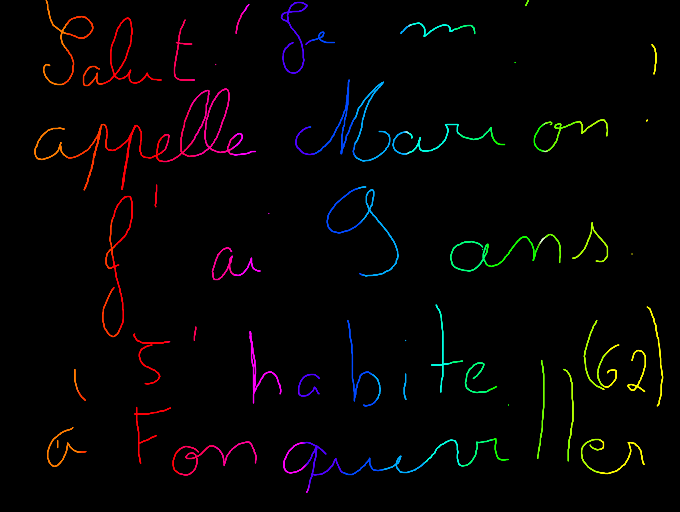 Salut ! Je m'
appelle Marion.
J'ai 9 ans.
J'habite (62)
à Fonquevillier